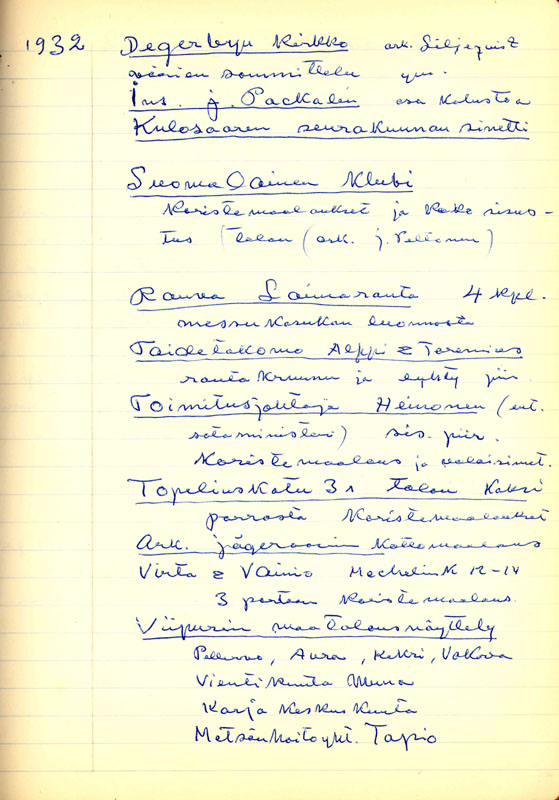 1932 Degerbyn Kirkko ark. Liljequist
värien sommittelu ym.
Ins. J. Packalén osa kalustoa
Kulosaaren seurakunnan sinetti
Suomalainen Klubi
Koristemaalaukset ja koko sisus-
tus talon (ark. J. Peltonen)
Rauha Saimaranta 4 kpl.
messukasukan luonnosta
Taidetakomo Alppi & Teremias
rautakruunu ja lyhty piir.
Toimitusjohtaja Heinonen (ent.
sotaministeri) sis. piir.
Koristemaalaus ja valaisimet.
Topeliuskatu 31 talon kaksi
porrasta Koristemaalaukset
Ark. Jägeroosin kattomaalaus
Virta & Vainio Mechelink 12-14
3 portaan koristemaalaus.
Viipurin maatalousnäyttely
Pellervo, Aura, Kekri, Vakava
Vientikunta Muna
Karjakeskuskunta
Metsänhoitoyht. Tapio